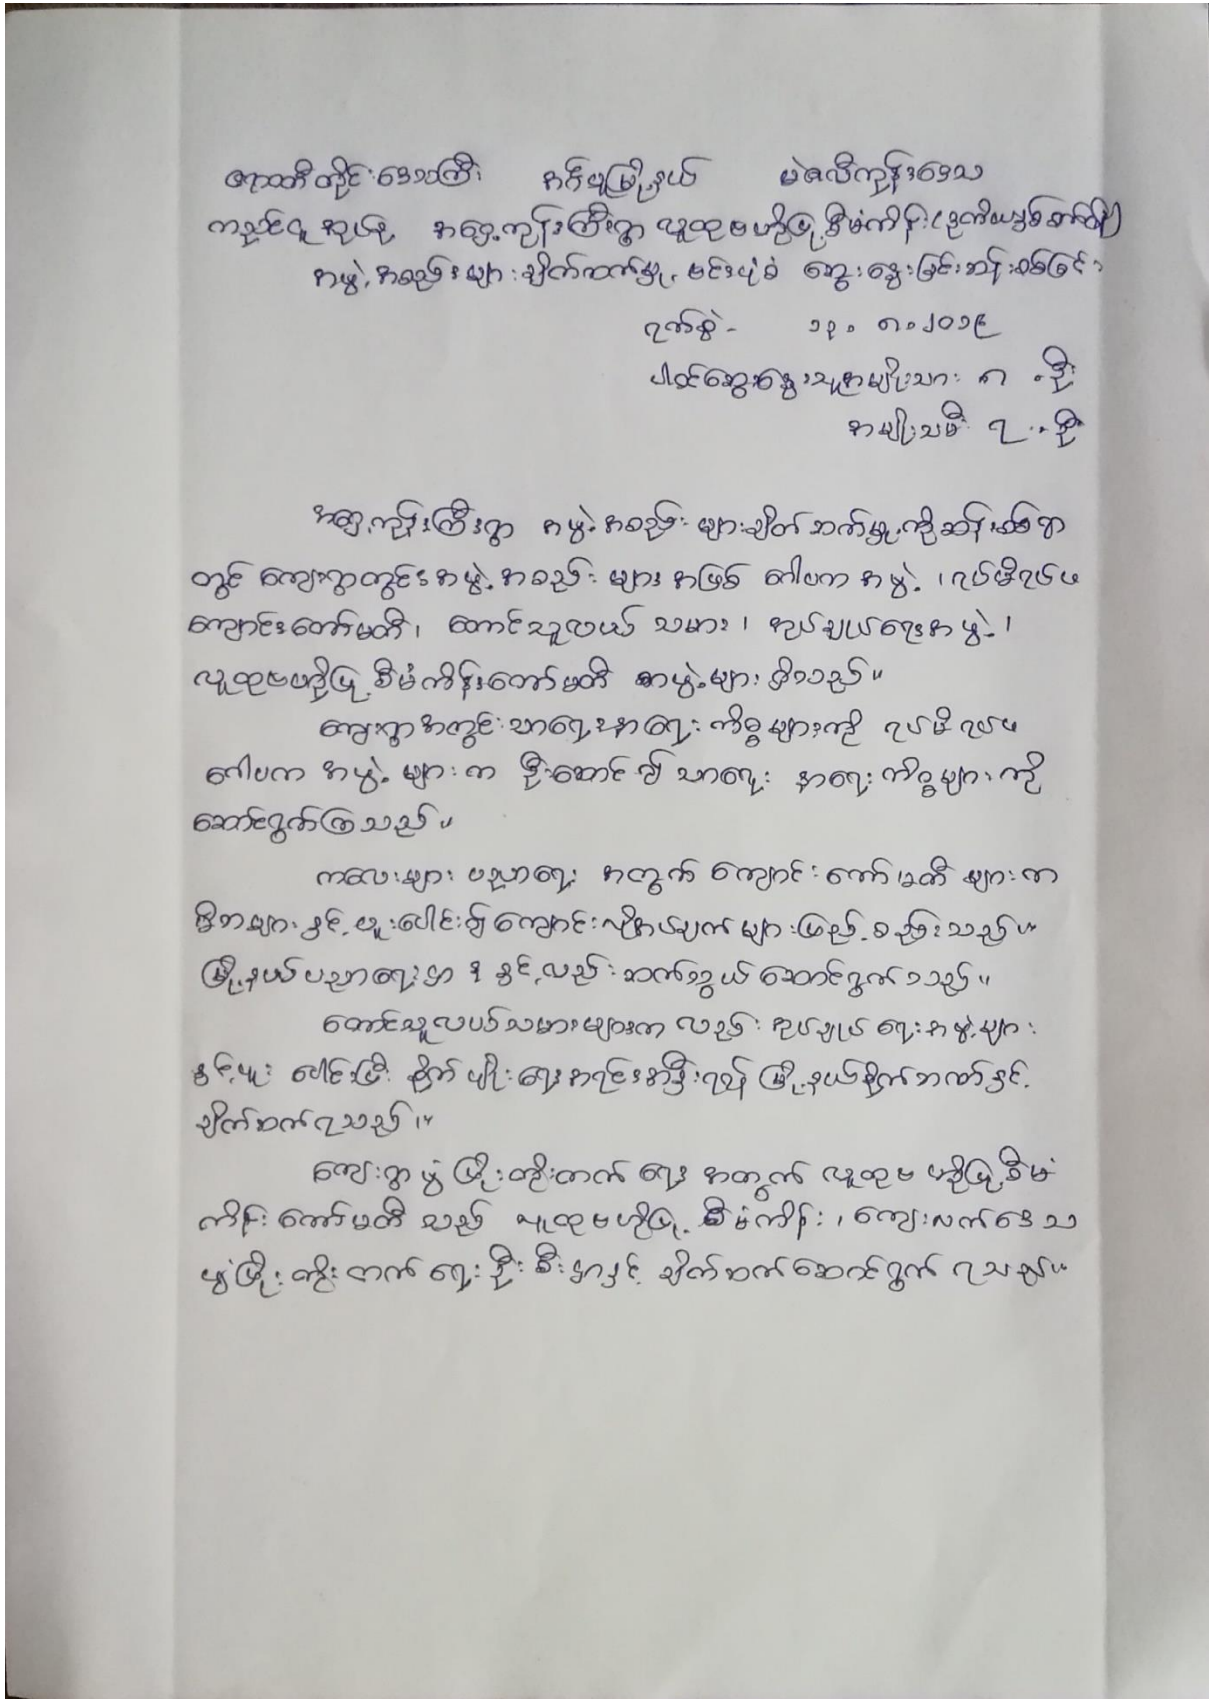 ဧရာဝတီတိုင်းဒေသကြီး အင်္ဂပူမြို့နယ် မဲဇလီကုန်းဒေသ
ကညင်ငူအုပ်စု အရှေ့ကုန်းကြီးရွာ လူထုဗဟိုပြုစီမံကိန်း(ဒုတိယနှစ်
အဖွဲ့အစည်းများချိတ်ဆက်မှု မင်းပုံစံ ဆွေးနွေးခြင်းဆန်းစစ်ခြင်း
ရက်စွဲ - ၁၃.၈.၂၀၁၉
ပါဝင်ဆွေးနွေးသူအမျိုးသား ၈ .ဦး
အမျိုးသမီး ၇ ..ဦး
အရှေ့ကုန်းကြီးရွာ အဖွဲ့အစည်းများချိတ်ဆက်မှုကိုဆန်းစစ်ရာ
တွင် ကျေးရွာတွင်းအဖွဲ့အစည်းများအဖြစ် ဂေါပကအဖွဲ့၊ရပ်မိရပ်ဖ
ကျောင်းကော်မတီ၊ တောင်သူလယ်သမား၊ အုပ်ချုပ်ရေးအဖွဲ့၊
လူထုဗဟိုပြုစီမံကိန်းကော်မတီ အဖွဲ့များရှိသည်။
ကျေးရွာအတွင်းသာရေးနာရေးကိစ္စများကို ရပ်မိရပ်ဖ
ဂေါပကအဖွဲ့များက ဦးဆောင်၍ သာရေး နာရေးကိစ္စများကို
ဆောင်ရွက်ကြသည်။
ကလေးများ ပညာရေးအတွက် ကျောင်းကော်မတီများက
မိဘများနှင့်ပူးပေါင်း၍ကျောင်းလိုအပ်ချက်များဖြည့်စည်းသည်။
မြို့နယ်ပညာရေးမှူးနှင့်လည်းဆက်သွယ်ဆောင်ရွက်သည်။
တောင်သူလယ်သမားများက လည်း အုပ်ချုပ်ရေးအဖွဲ့များ
နှင့်ပူးပေါင်းပြီး စိုက်ပျိုးရေးအရင်းအနှီးရရန် မြို့နယ်စိုက်ဘဏ်နှင့်
ချိတ်ဆက်ရသည်။
ကျေးရွာဖွံ့ဖြိုးတိုးတက်ရေးအတွက် လူထုဗဟိုပြုစီမံ
ကိန်းကော်မတီသည် လူထုဗဟိုပြုစီမံကိန်း၊ကျေးလက်ဒေသ
ဖွံ့ဖြိုးတိုးတက်ရေးဦးစီးဌာနှင့် ချိတ်ဆက်ဆောင်ရွက်ရသည်။